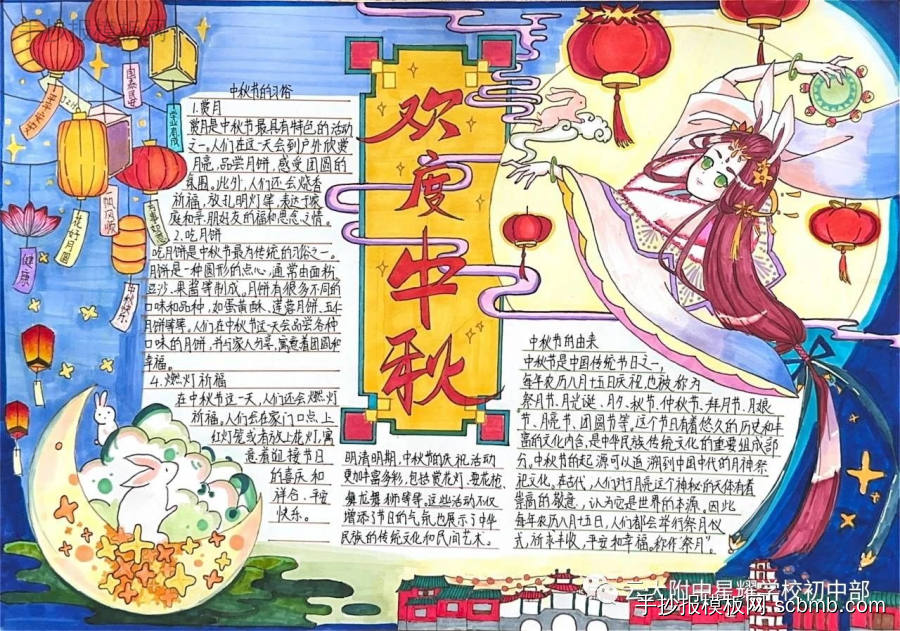 欢度中秋
中秋节的习俗
1.赏月
赏月是中秋节最具有特色的活动
之一。人们在这一天会到户外欣赏
月亮,品尝月饼,感受团圆的
氛围。此外,人们还会烧香
祈福,放孔明灯等,表达于家
庭和亲朋好友的祝福和思念之情。
2.吃月饼
吃月饼是中秋节最为传统的习俗之一。
月饼是一种圆形的点心,通常由面粉,
豆沙、果酱等制成。月饼有很多不同的
口味和品种,如蛋黄酥、莲蓉月饼、五仁
月饼等等。人们在中秋节这一天会品尝各种
口味的月饼,并与家人分享,寓意着团圆和
幸福。
4.燃灯祈福
在中秋节这一天,人们还会燃灯
祈福。人们会在家门口点上
红灯笼或者放上花灯,寓
意着迎接节日
的喜庆和
祥合、平安
快乐。
明清明期,中秋节的庆祝活动
更加丰富多彩,包括赏花灯、
舞龙舞狮等等。这些活动不仅
增添了节日的气氛也展示了中华
民族的传统文化和民间艺术。
中秋节的由来
中秋节是中国传统节日之一,
每年农历八月十五日庆祝,也被称为
祭月节、月光诞、月夕、秋节、仲秋节、拜月节、月娘
节、月亮节、团圆节等。这个节日有着悠久的历史和丰
富的文化内含,是中华民族传统文化的重要组成部
分。中秋节的起源可以追溯到中国中代的月神祭
祀文化。在古代,人们对月亮这个神秘的天体有着
崇高的敬意,认为它是世界的本源。因此
每年农历八月十五日,人们都会举行祭月仪
式,祈求丰收,平安和幸福。称作"祭月"。
国泰民安
学业有成
花好月圆
健康
云大附中星耀学校初中部
手抄报模板网-scbmb.com